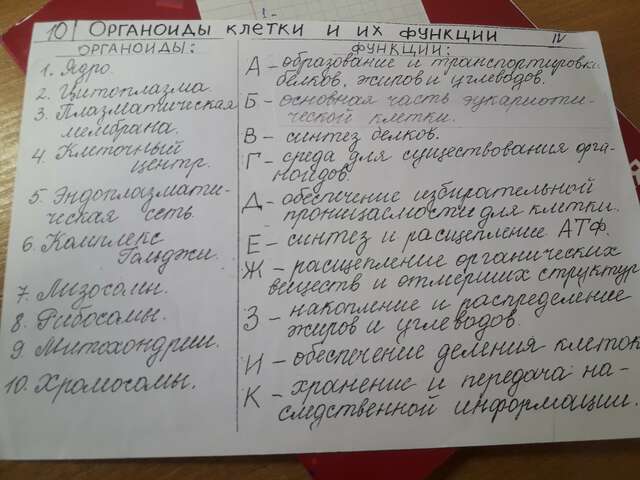 1-
10) Органоиды клетки и их функции IV
Органоиды:
1. Ядро.
2. Цитоплазма.
3. Плазматическая
мембрана.
4. Клеточный
центр.
5. Эндоплазмати-
ческая сеть.
6. Комплекс
Гольджи.
7. Лизосомы.
8. Рибосомы.
9. Митохондрии.
10. Хромосомы.
Функции:
А - образование и транспортировка
белков, жиров и углеводов.
Б - основная часть эукариоти-
ческой клетки.
В - синтез белков.
Г - среда для существования орга-
ноидов.
Д - обеспечение избирательной
проницаемости для клетки.
Е - синтез и расщепление АТФ.
Ж - расщепление органических
веществ и отмерших структур
З - накопление и распределение
жиров и углеводов.
И - обеспечение деления клеток
К - хранение и передача на-
следственной информации.